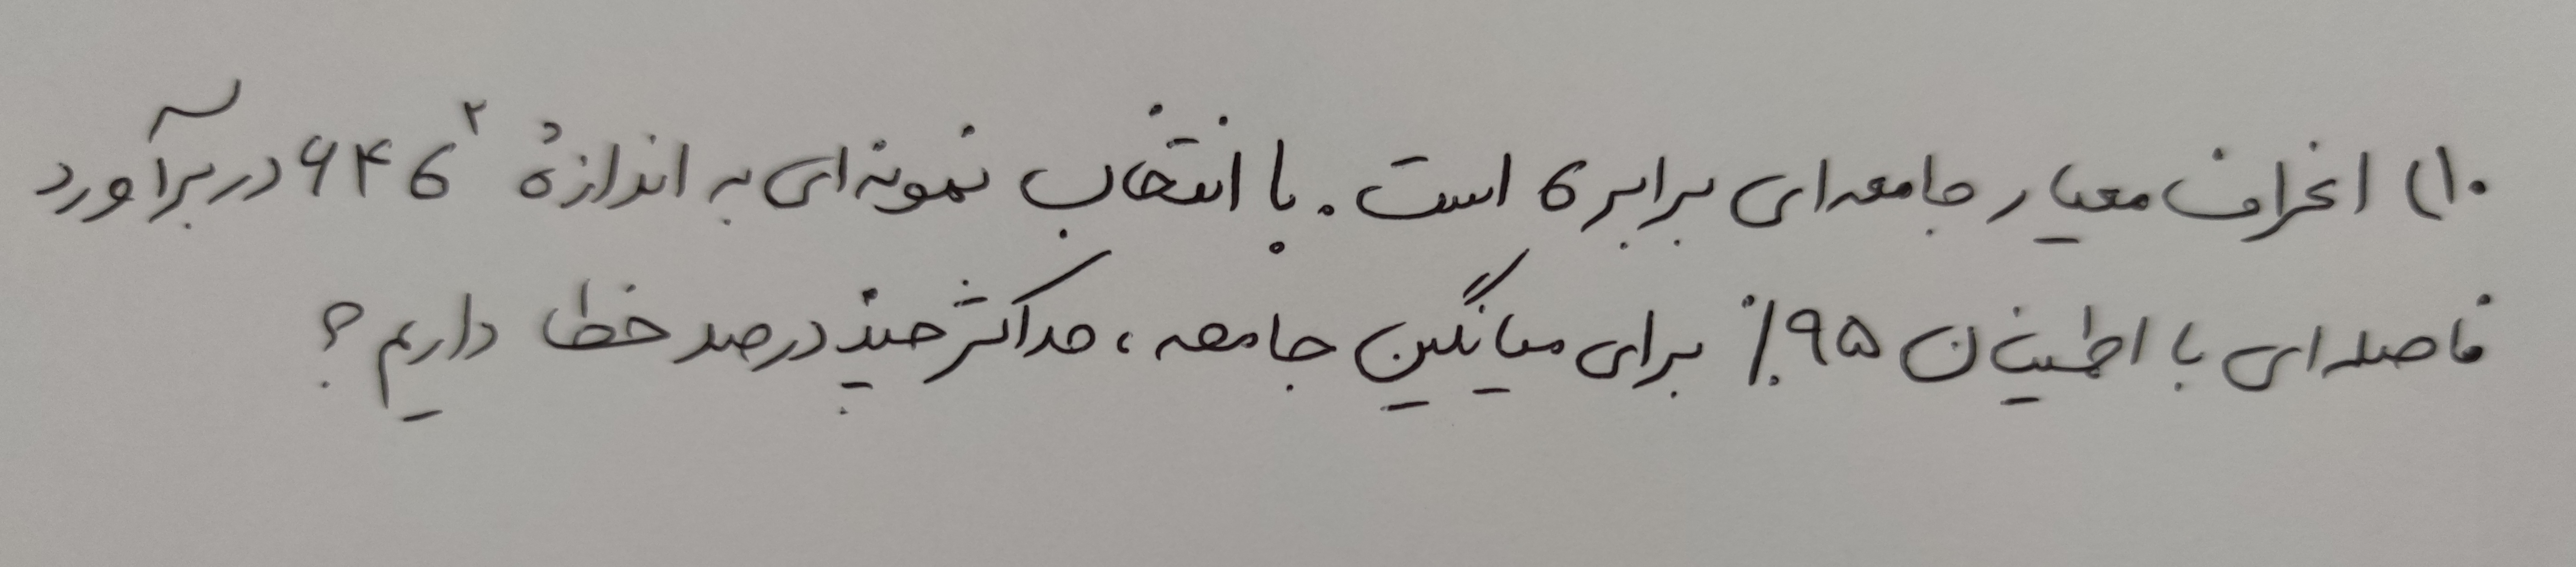 ۱۰) انحراف معیار جامعه‌ای برابر σ است. با انتخاب نمونه‌ای به اندازهٔ ۶۴σ² در برآورد
فاصله‌ای با اطمینان ۹۵٪ برای میانگین جامعه، حداکثر چند درصد خطا داریم؟